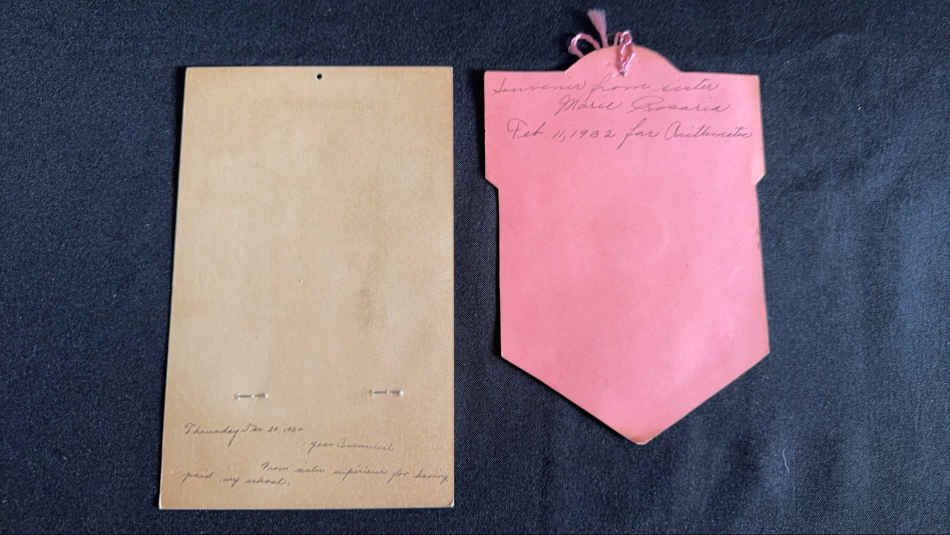 Thursday Dec 21, 193
year Convent
From sister supérieure for having
paid my school.
Souvenir from sister
Marie Rosaria
Feb 11, 1932 for Arithmetic